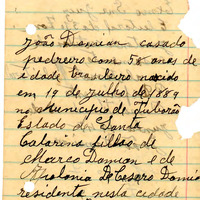 João Damian casado
pedreiro com 58 anos de
idade brasileiro nascido
em 19 de julho de 1889
no Municipio de Tubarão
Estado de Santa
Catarina filho de
Marco Damian e de
De Cesaro Damian
residente nesta cidade